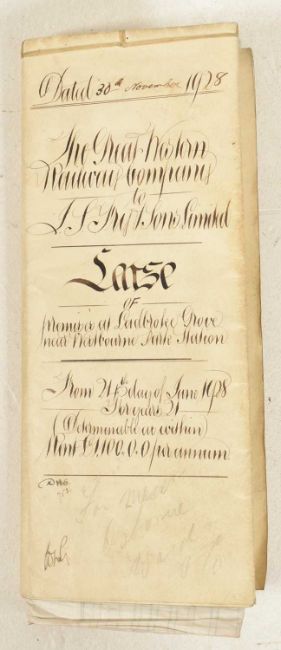 Dated 30th November 1928
The Great Western
Railway Company
to
& Sons Limited
Lease
OF
premises at Ladbroke Grove
near Westbourne Park Station
From 24th day of June 1928
For years 21
(Determinable as within)
Rent £1100.0.0 per annum